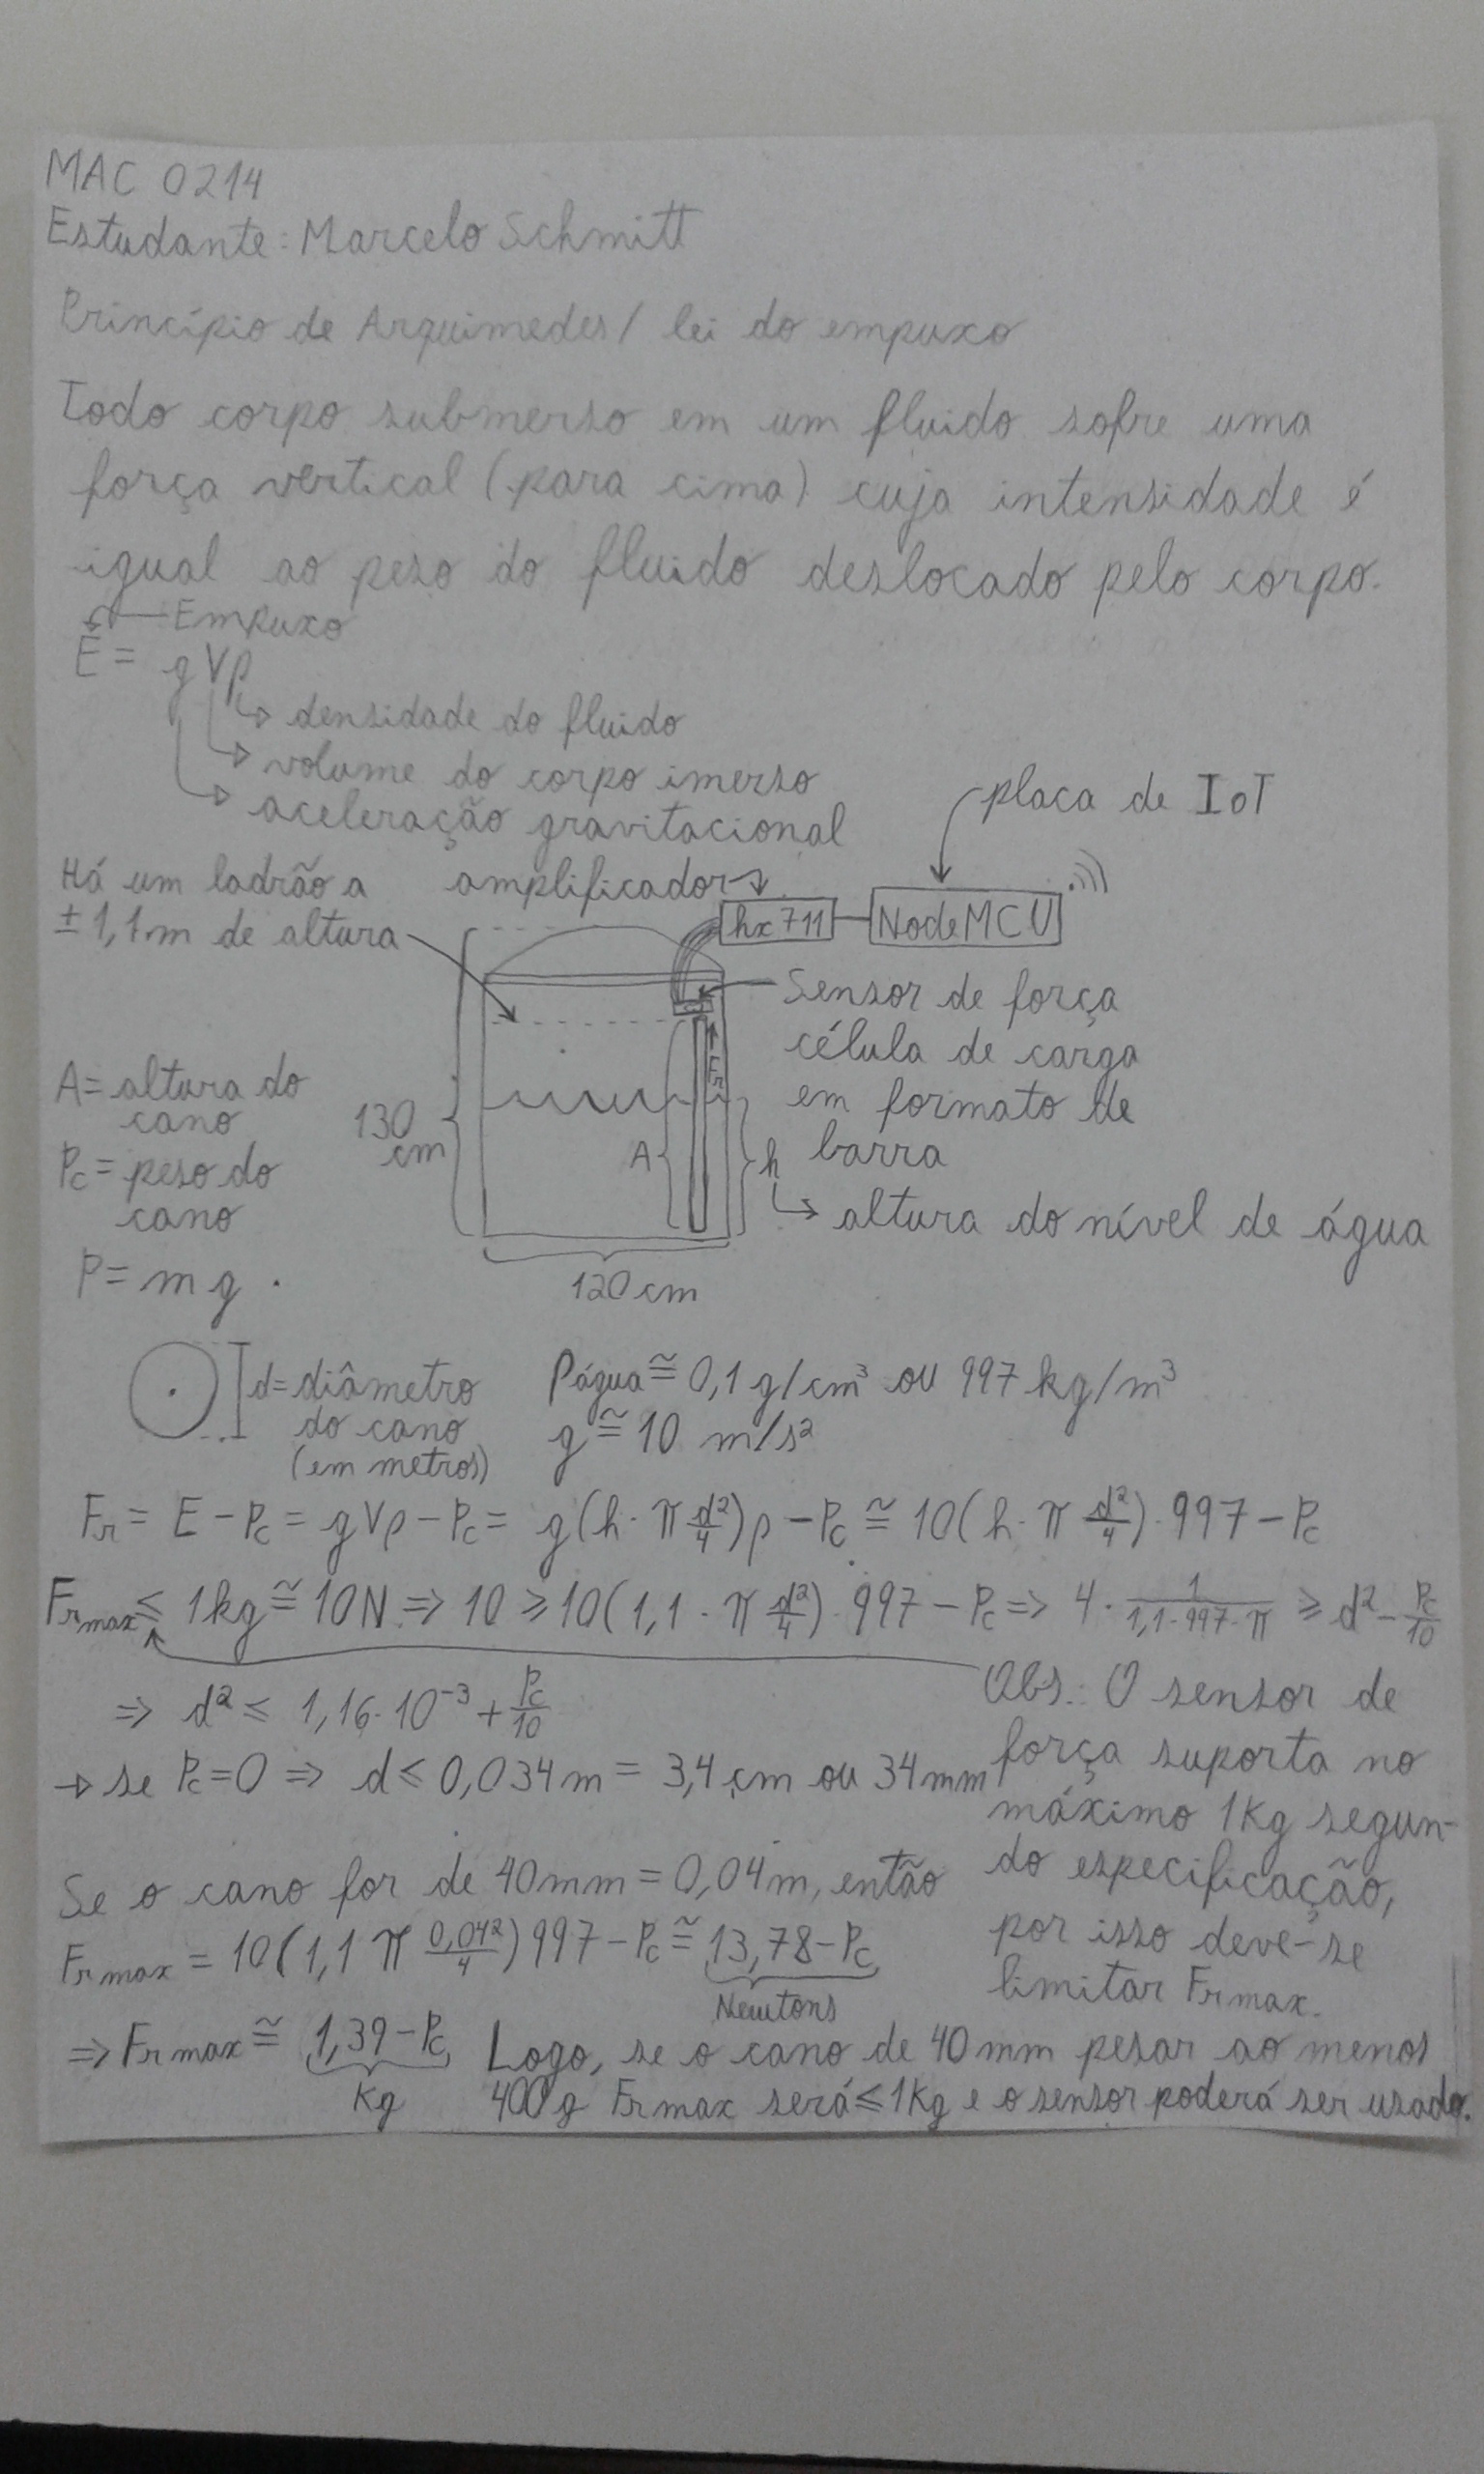 MAC 0214
Estudante: Marcelo Schmitt
Princípio de Arquimedes / lei do empuxo
Todo corpo submerso em um fluido sofre uma
força vertical (para cima) cuja intensidade é
igual ao peso do fluido deslocado pelo corpo.
Empuxo
E = gVρ
densidade do fluido
volume do corpo imerso
aceleração gravitacional
placa de IoT
Há um ladrão a
± 1,1m de altura
amplificador
hx711
NodeMCU
Sensor de força
célula de carga
em formato de
barra
Fr
A = altura do
cano
Pc = peso do
cano
P = mg
130
cm
A
h
altura do nível de água
120 cm
d = diâmetro
do cano
(em metros)
ρágua ≅ 0,1 g/cm³ ou 997 kg/m³
g ≅ 10 m/s²
Fr = E - Pc = gVρ - Pc = g(h · π d²/4)ρ - Pc ≅ 10(h · π d²/4) · 997 - Pc
Frmax ≤ 1kg ≅ 10N ⇒ 10 ≥ 10(1,1 · π d²/4) · 997 - Pc ⇒ 4 · 1/(1,1 · 997 · π) ≥ d² - Pc/10
⇒ d² ≤ 1,16 · 10⁻³ + Pc/10
→ se Pc = 0 ⇒ d ≤ 0,034 m = 3,4 cm ou 34 mm
Obs.: O sensor de
força suporta no
máximo 1Kg segun-
do especificação,
por isso deve-se
limitar Frmax.
Se o cano for de 40mm = 0,04m, então
Frmax = 10(1,1 π 0,04²/4) 997 - Pc ≅ 13,78 - Pc
Newtons
⇒ Frmax ≅ 1,39 - Pc
Kg
Logo, se o cano de 40mm pesar ao menos
400g Frmax será ≤ 1Kg e o sensor poderá ser usado.